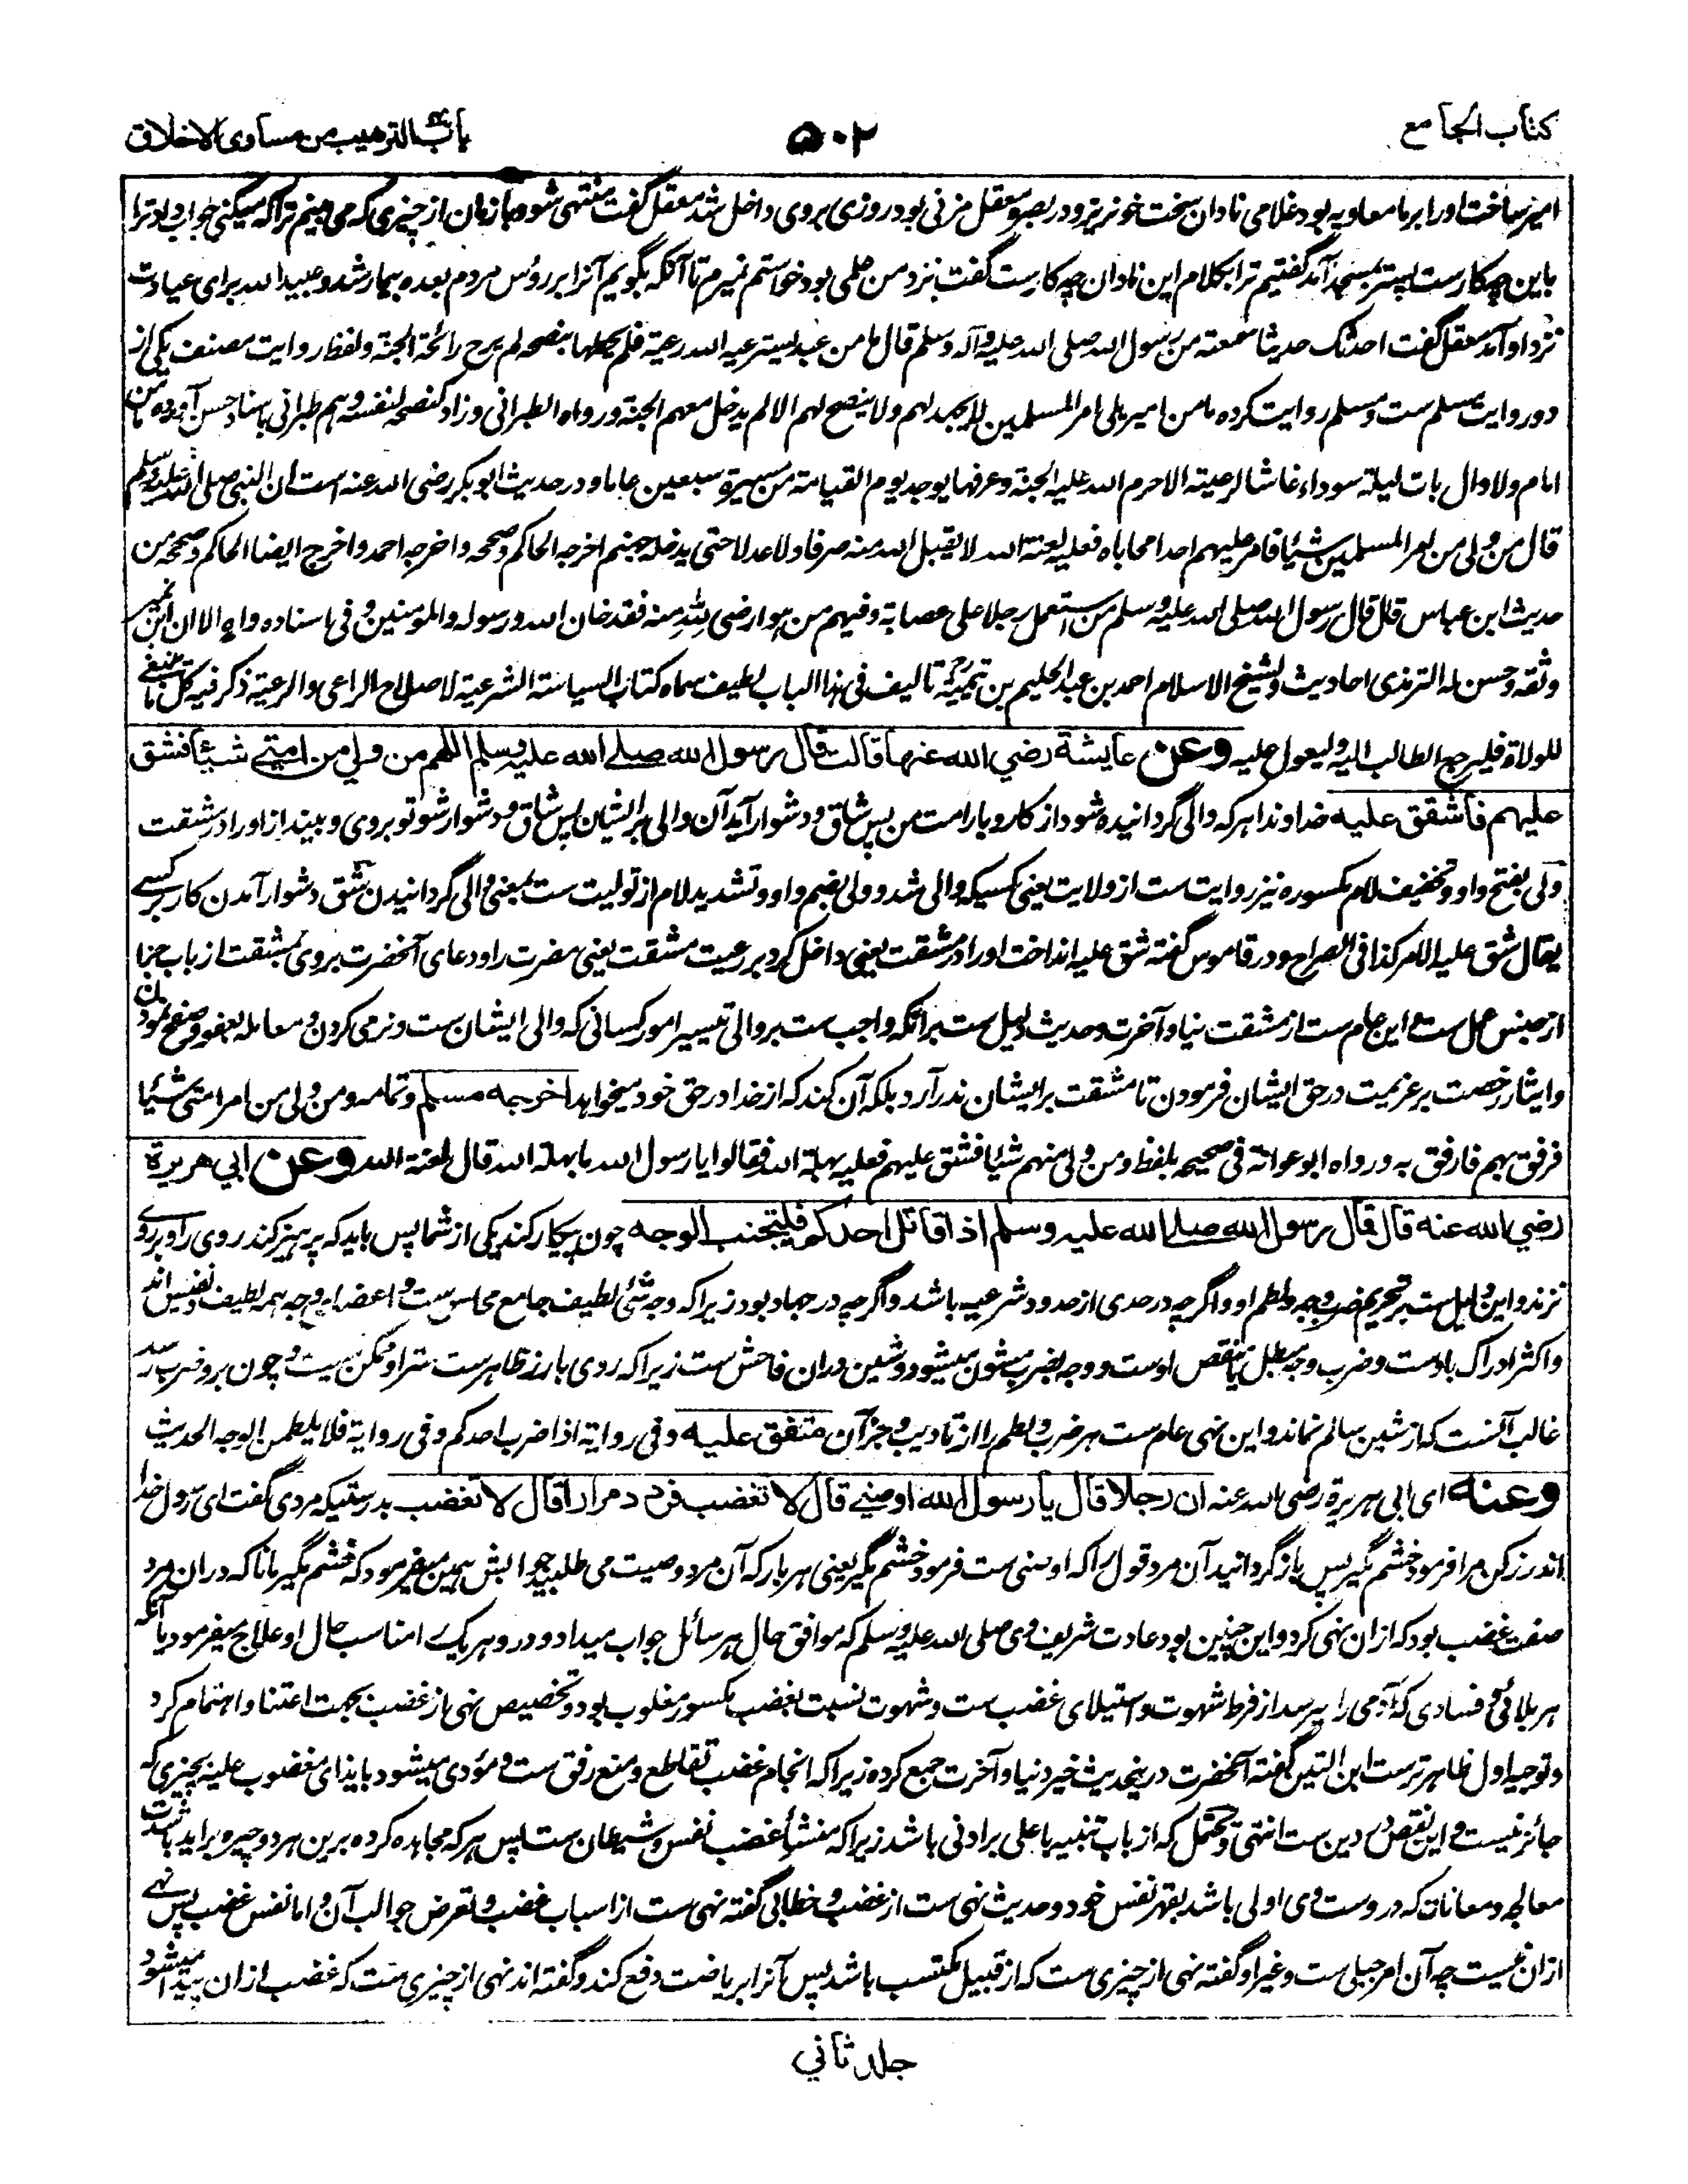 کتاب الجامع
۵۰۲
باب الترهیب من مساوی الاخلاق
امیر ساخت او را بر ما معاویه بود غلامی نادان سخت خونریز و در بصره معقل مزنی بود روزی بر وی داخل شد معقل گفت منتهی شو و باز مان از چیزی که می بینم ترا که میکنی جواب داد ترا
باین چه کارست پستر بمسجد آمد گفتیم ترا بکلام این نادان چه کارست گفت نزد من علمی بود خواستم نمیرم تا آنکه بگویم آنرا بر رؤس مردم بعده بیمار شد و عبیدالله برای عیادت
نزد او آمد معقل گفت احدثک حدیثا سمعته من رسول الله صلی الله علیه وآله وسلم قال ما من عبد یسترعیه الله رعیة فلم یحطها بنصحه لم یرح رائحة الجنة ولفظ روایت مصنف یکی از
دو روایت مسلم ست و مسلم روایت کرده ما من امیر یلی امر المسلمین لا یجهد لهم ولا ینصح لهم الا لم یدخل معهم الجنة و رواه الطبرانی و زاد کنصحه لنفسه و هم طبرانی باسناد حسن آورده ما من
امام ولا وال بات لیلة سوداء غاشا لرعیته الا حرم الله علیه الجنة وعرفها یوجد یوم القیامة من مسیرة سبعین عاما و در حدیث ابوبکر رضی الله عنه است ان النبی صلی الله علیه وسلم
قال من ولی من امر المسلمین شیئا فامر علیهم احدا محاباه فعلیه لعنة الله لا یقبل الله منه صرفا ولا عدلا حتی یدخله جهنم اخرجه الحاکم وصححه واخرجه احمد واخرج ایضا الحاکم وصححه من
حدیث ابن عباس قال قال رسول الله صلی الله علیه وسلم من استعمل رجلا علی عصابة وفیهم من هو ارضی لله منه فقد خان الله ورسوله والمومنین وفی اسناده واه الا ان ابن نمیر
وثقه وحسن له الترمذی احادیث ولشیخ الاسلام احمد بن عبدالحلیم بن تیمیة رح تالیف فی هذا الباب لطیف سماه کتاب السیاسة الشرعیة لاصلاح الراعی والرعیة ذکر فیه کل ما ینبغی
للولاة فلیرجع الطالب الیه ولیعول علیه وعن عایشة رضي الله عنها قالت قال رسول الله صلے الله علیه وسلم اللهم من ولي من امتے شیئا فشق
علیهم فاشقق علیه خداوندا هر که والی گردانیده شود از کاروبار امت من پس شاق و دشوار آید آن والی بر ایشان پس شاق و دشوار شو تو بر وی و بینداز او را در مشقت
ولی بفتح واو و تخفیف لام مکسوره نیز روایت ست از ولایت یعنی کسیکه والی شد و ولی بضم واو و تشدید لام از تولیت ست بمعنی والی گردانیدن شق دشوار آمدن کار بر کسے
یقال شق علیه الامر کذا فی الصراح و در قاموس گفته شق علیه انداخت او را در مشقت یعنی داخل کرد بر رعیت مشقت یعنی مضرت را و دعای آنحضرت بر وی بمشقت از باب جزا
از جنس عمل ست و این عام ست از مشقت دنیا و آخرت و حدیث دلیل ست بر آنکه واجب ست بر والی تیسیر امور کسانی که والی ایشان ست و نرمی کردن و معامله بعفو و صفح نمودن
وایثار رخصت بر عزیمت در حق ایشان فرمودن تا مشقت بر ایشان ندرآرد بلکه آن کند که از خدا در حق خود میخواهد اخرجه مسلم وتمامه ومن ولی من امر امتی شیئا
فرفق بهم فارفق به و رواه ابو عوانة فی صحیحه بلفظ ومن ولی منهم شیئا فشق علیهم فعلیه بهلة الله فقالوا یا رسول الله ما بهلة الله قال لعنة الله وعن ابي هریرة
رضي الله عنه قال قال رسول الله صلے الله علیه وسلم اذا قاتل احدکم فلیتجنب الوجه چون پیکار کند یکی از شما پس باید که پرهیز کند روی را و بر روے
نزند و این دلیل ست بر تحریم ضرب وجه ولطم او و اگرچه در حدی از حدود شرعیه باشد و اگرچه در جهاد بود زیرا که وجه شئی لطیف جامع محاسن ست و اعضاء وجه همه لطیف و نفیس اند
و اکثر ادراک بادست و ضرب وجه مبطل یا منقص اوست و وجه بضرب مشوه میشود و شین دران فاحش ست زیرا که روی بارز ظاهرست ستر او ممکن نیست و چون بر و ضرب رسد
غالب آنست که از شین سالم نماند و این نهی عام ست هر ضرب و لطم را از تادیب و جز آن متفق علیه وفی روایة اذا ضرب احدکم وفی روایة فلا یلطمن الوجه الحدیث
وعنه ای ابی هریرة رضی الله عنه ان رجلا قال یا رسول الله اوصنے قال لا تغضب فردد مرارا قال لا تغضب بدرستیکه مردی گفت ای رسول خدا
اندرز کن مرا فرمود خشم مگیر پس بازگردانید آن مرد قول را که اوصنی ست فرمود خشم مگیر یعنی هر بار که آن مرد وصیت می طلبید جوابش همین میفرمود که خشم مگیر مانا که دران مرد
صفت غضب بود که ازان نهی کرد و این چنین بود عادت شریف وی صلی الله علیه وسلم که موافق حال هر سائل جواب میداد و درد هر یک را مناسب حال او علاج میفرمود یا آنکه
هر بلائی و فسادی که آدمی را میرسد از فرط شهوت و استیلای غضب ست و شهوت نسبت بغضب مکسور مغلوب بود و تخصیص نهی از غضب بجهت اعتنا و اهتمام کرد
و توجیه اول ظاهرترست ابن التین گفته آنحضرت درینحدیث خیر دنیا و آخرت جمع کرده زیرا که انجام غضب تقاطع و منع رفق ست و مؤدی میشود بایذای مغضوب علیه بچیزی که
جائز نیست و این نقص در دین ست انتهی و محتمل که از باب تنبیه باعلی بر ادنی باشد زیرا که منشأ غضب نفس و شیطان ست پس هر که مجاهده کرده برین هر دو چیره برآید با شدت
معالجه و معانات که دروست وی اولی باشد بقهر نفس خود و حدیث نهی ست از غضب و خطابی گفته نهی ست از اسباب غضب و تعرض جوالب آن و اما نفس غضب پس نهے
ازان نیست چه آن امر جبلی ست و غیر او گفته نهی از چیزی ست که از قبیل مکتسب باشد پس آنرا بریاضت دفع کند و گفته اند نهی از چیزی ست که غضب ازان پیدا میشود
جلد ثاني